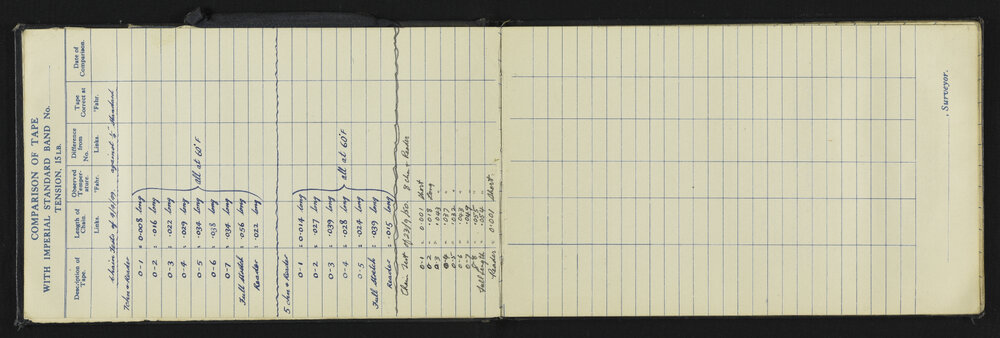 COMPARISON OF TAPE
WITH IMPERIAL STANDARD BAND No.
TENSION, 15 LB.
Description of Tape. Length of Chain. Observed Temperature. Difference from No. Tape Correct at Date of Comparison.
Links. °Fahr. Links. °Fahr.
Chain Tests of against Standard
7 chn & Reader
0-1 = 0.008 long
0-2 = .016 long
0-3 = .022 long
0-4 = .029 long
0-5 = .034 long all at 60°F
0-6 = .038 long
0-7 = .034 long
Full Stretch = .056 long
Reader = .022 long
5 chn & Reader
0-1 = 0.014 long
0-2 = .027 long
0-3 = .039 long
0-4 = .028 long all at 60°F
0-5 = .024 long
Full Stretch = .039 long
Reader = .015 long
Chain Test of 23/9/50. 8 chn & Reader
0-1 = 0.001 short
0-2 = .018 long
0-3 = .043 "
0-4 = .037 "
0-5 = .032 "
0-6 = .043 "
0-7 = .049 "
0-8 = .055 "
Full length = .054 "
Reader = 0.001 short.
, Surveyor.